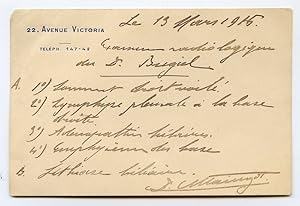 22, AVENUE VICTORIA
TÉLÉPH. 147-42
Le 13 Mars 1916.
Examen radiologique
du Dr. Bregiel
A. 1º) Sommet droit voilé.
2º) Symphyse pleurale à la base
droite
3º) Adénopathie hilaire.
4º) Emphysème des base
B. Lithiase biliaire.
Dr.